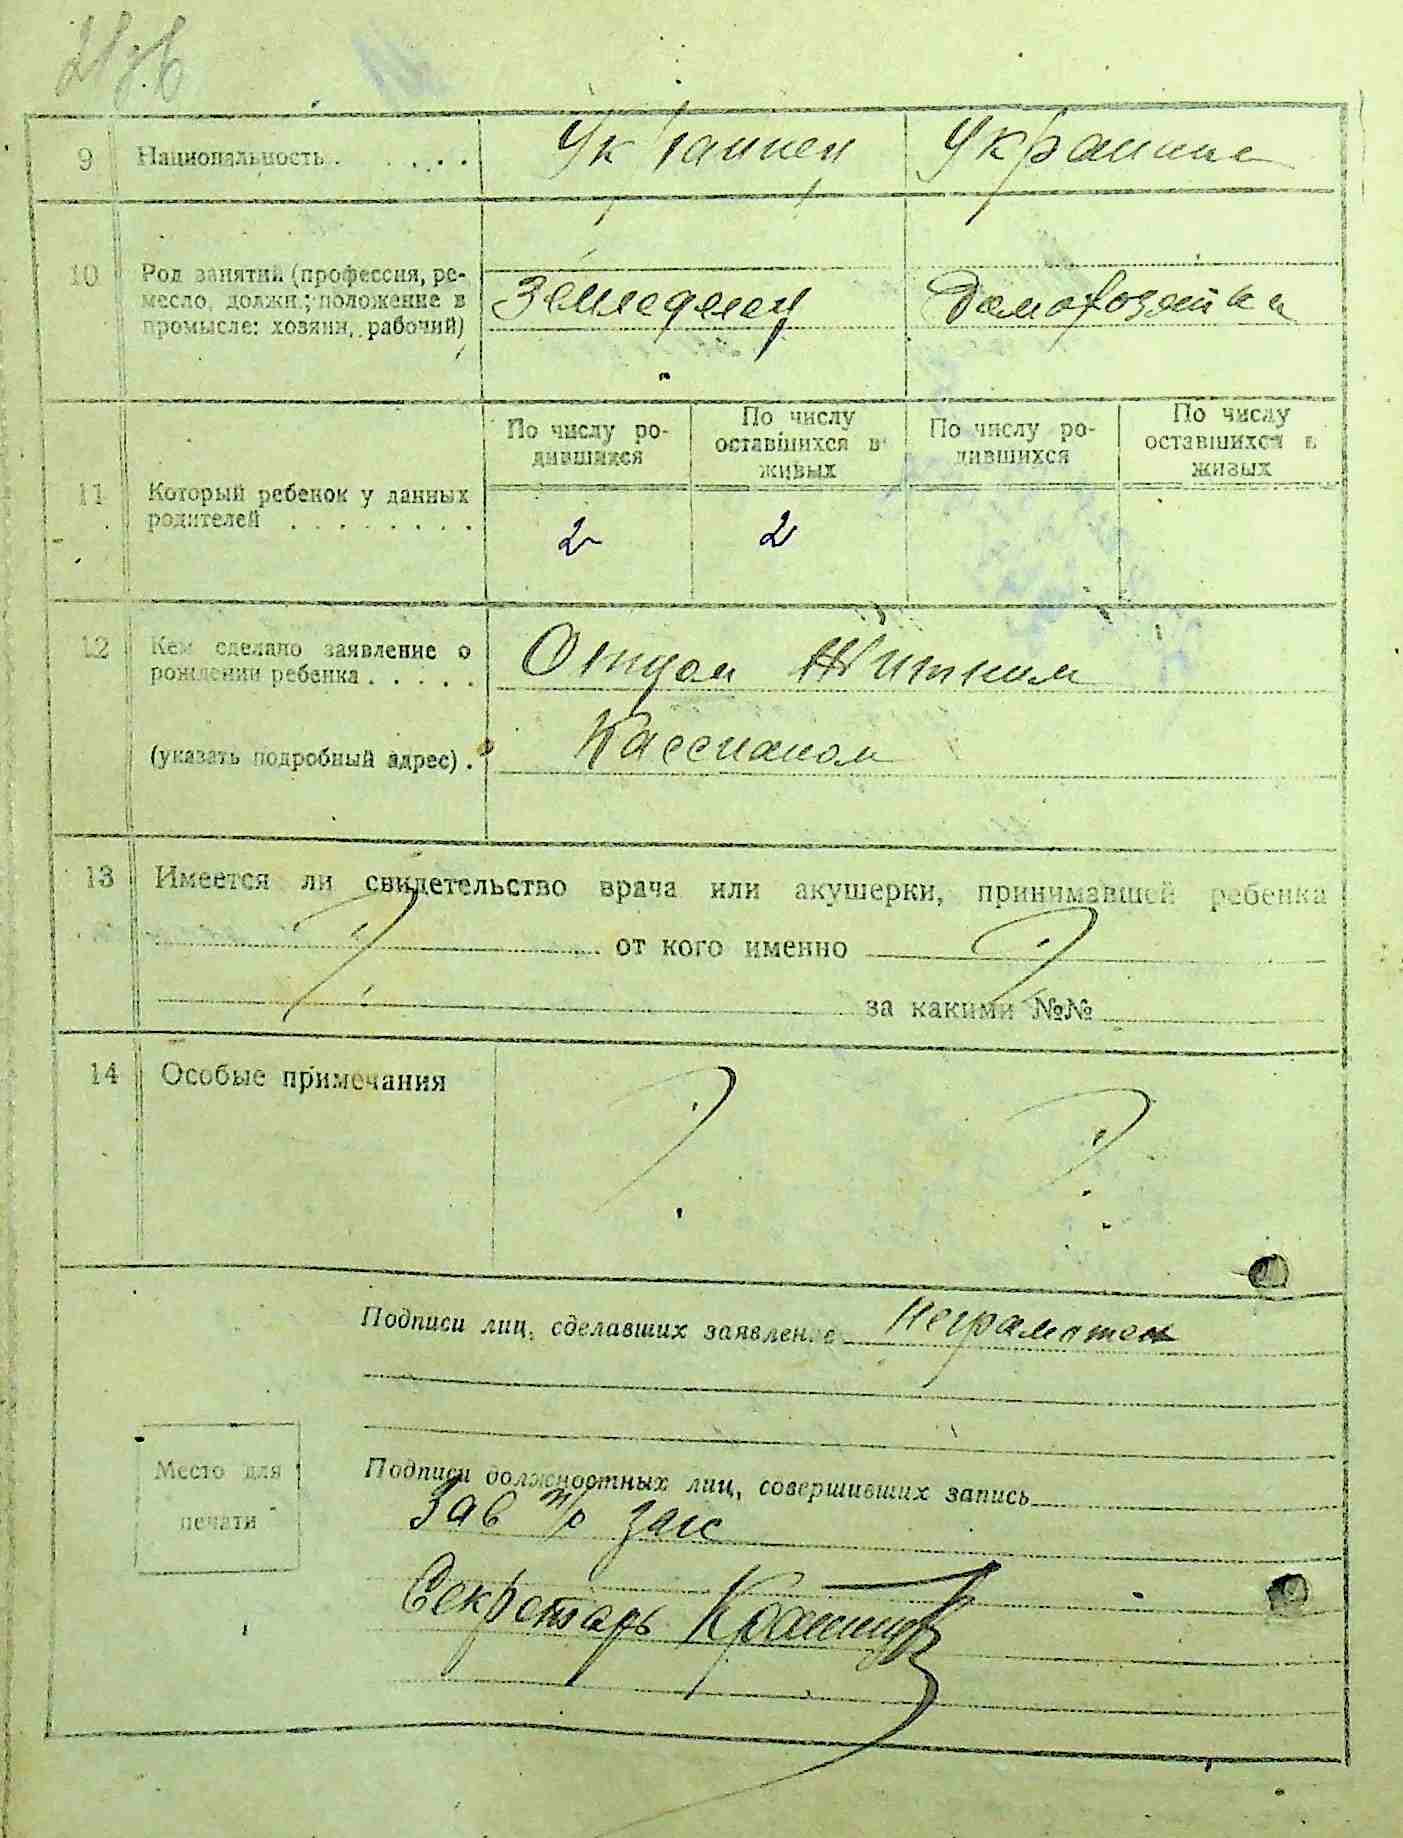 9 Национальность . . . . . Украинец Украинка
10 Род занятий (профессия, ре-
месло, должн.; положение в
промысле: хозяин, рабочий)
Земледелец Домохозяйка
11 Который ребенок у данных
родителей . . . . . . . .
По числу ро-
дившихся
По числу
оставшихся в
живых
По числу ро-
дившихся
По числу
оставшихся в
живых
2 2
12 Кем сделано заявление о
рождении ребенка . . . . .
(указать подробный адрес) .
Отцом Житним
Кассианом
13 Имеется ли свидетельство врача или акушерки, принимавшей ребенка
? от кого именно ?
за какими №№
14 Особые примечания ? ?
Подписи лиц, сделавших заявление неграмотен
Место для
печати
Подписи должностных лиц, совершивших запись
Зав п/о загс
Секретарь